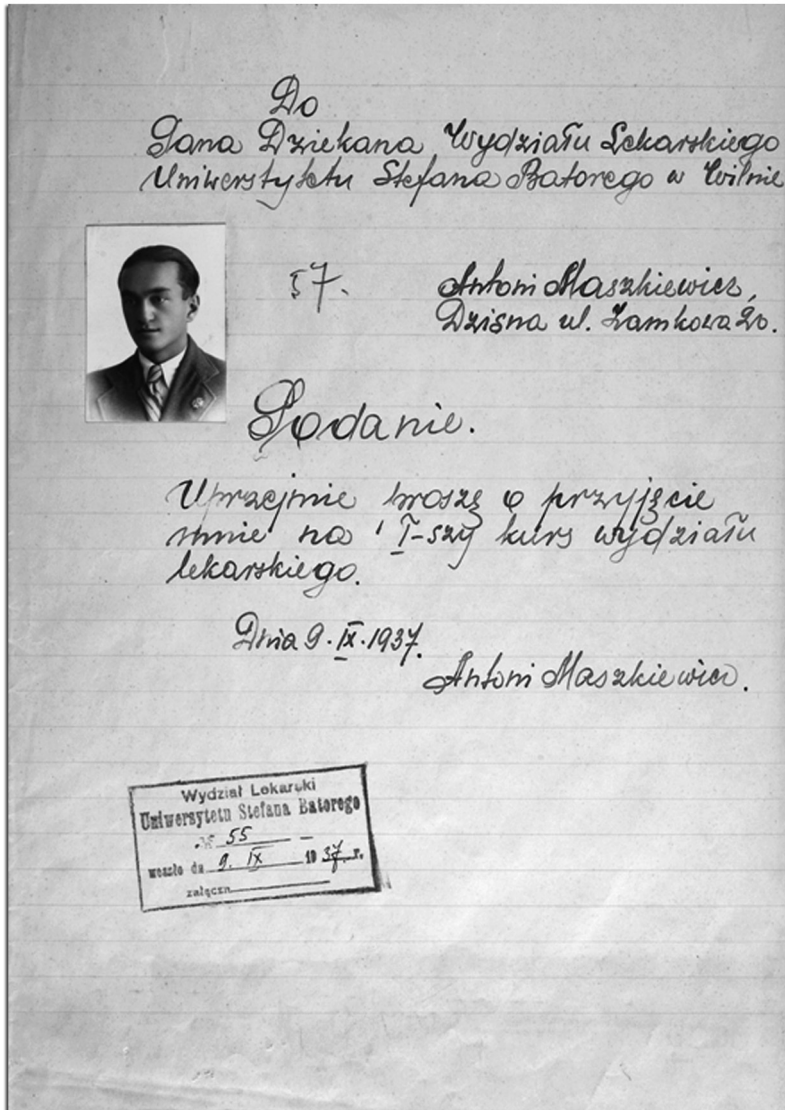 Do
Pana Dziekana Wydziału Lekarskiego
Uniwerstytetu Stefana Batorego w Wilnie
57.
Antoni Maszkiewicz,
Dzisna ul. Zamkowa 20.
Podanie.
Uprzejmie proszę o przyjęcie
mnie na I-szy kurs wydziału
lekarskiego.
Dnia 9.IX.1937.
Antoni Maszkiewicz.
Wydział Lekarski
Uniwersytetu Stefana Batorego
№ 55
weszło dn 9. IX 1937 r.
załączn.